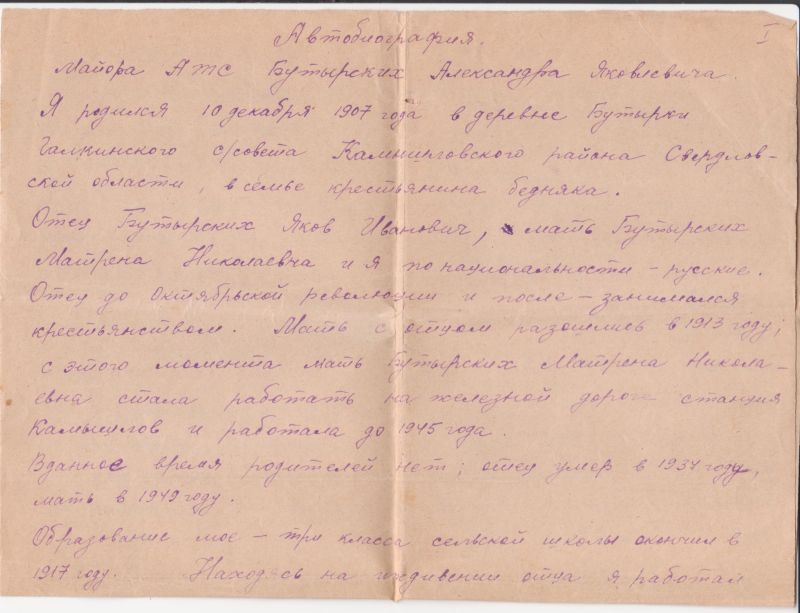 I
Автобиография.
Майора АТС Бутырских Александра Яковлевича.
Я родился 10 декабря 1907 года в деревне Бутырки
Галкинского с/совета Камышловского района Свердлов-
ской области, в семье крестьянина бедняка.
Отец Бутырских Яков Иванович, мать Бутырских
Матрена Николаевча и я по национальности – русские.
Отец до Октябрьской революции и после – занимался
крестьянством. Мать с отцом разошлись в 1913 году;
с этого момента мать Бутырских Матрена Никола-
евна стала работать на железной дороге станция
Камышлов и работала до 1945 года.
В данное время родителей нет; отец умер в 1934 году,
мать в 1949 году.
Образование мое – три класса сельской школы окончил в
1917 году. Находясь на иждивении отца я работал